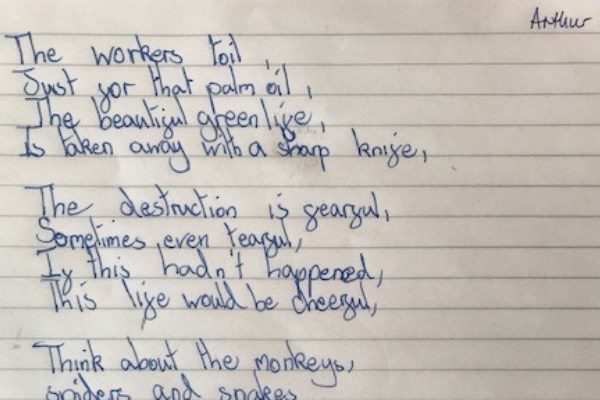 Arthur
The workers toil,
Just for that palm oil,
The beautiful green life,
Is taken away with a sharp knife,
The destruction is fearful,
Sometimes even tearful,
If this hadn't happened,
This life would be cheerful,
Think about the monkeys,
spiders and snakes